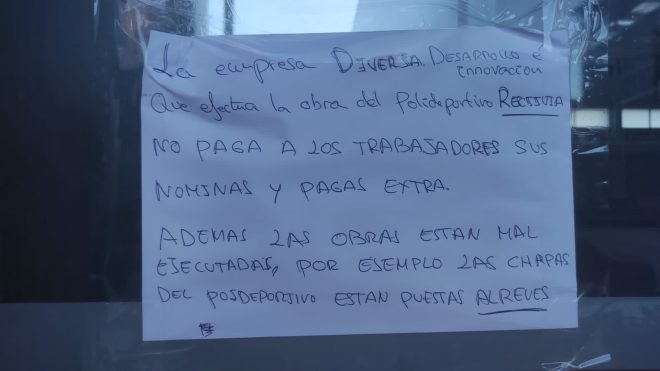 La empresa DIVERSA DESARROLLO E
INNOVACION
Que efectua la obra del Polideportivo
NO PAGA A LOS TRABAJADORES SUS
NOMINAS Y PAGAS EXTRA.
ADEMAS LAS OBRAS ESTAN MAL
EJECUTADAS, POR EJEMPLO LAS CHAPAS
DEL POSDEPORTIVO ESTAN PUESTAS ALREVES